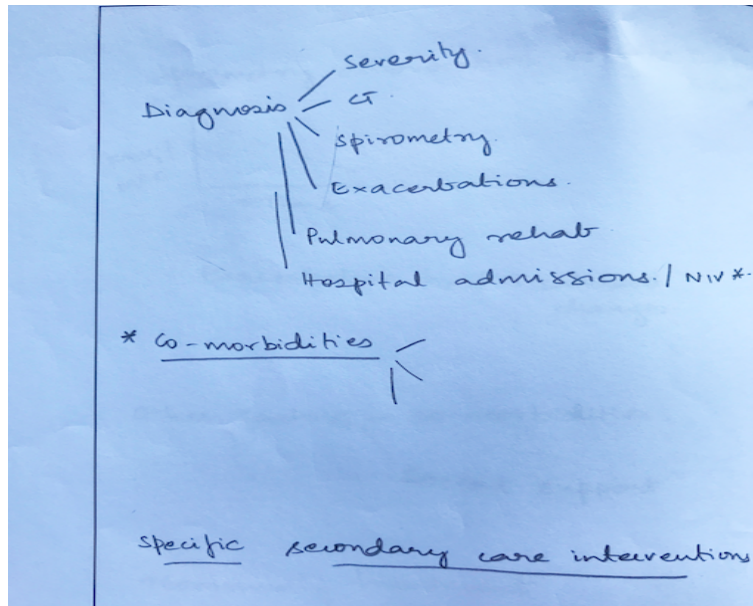 Severity.
Diagnosis
CT.
Spirometry.
Exacerbations.
Pulmonary rehab
Hospital admissions. / NIV *.
* Co-morbidities
specific secondary care interventions